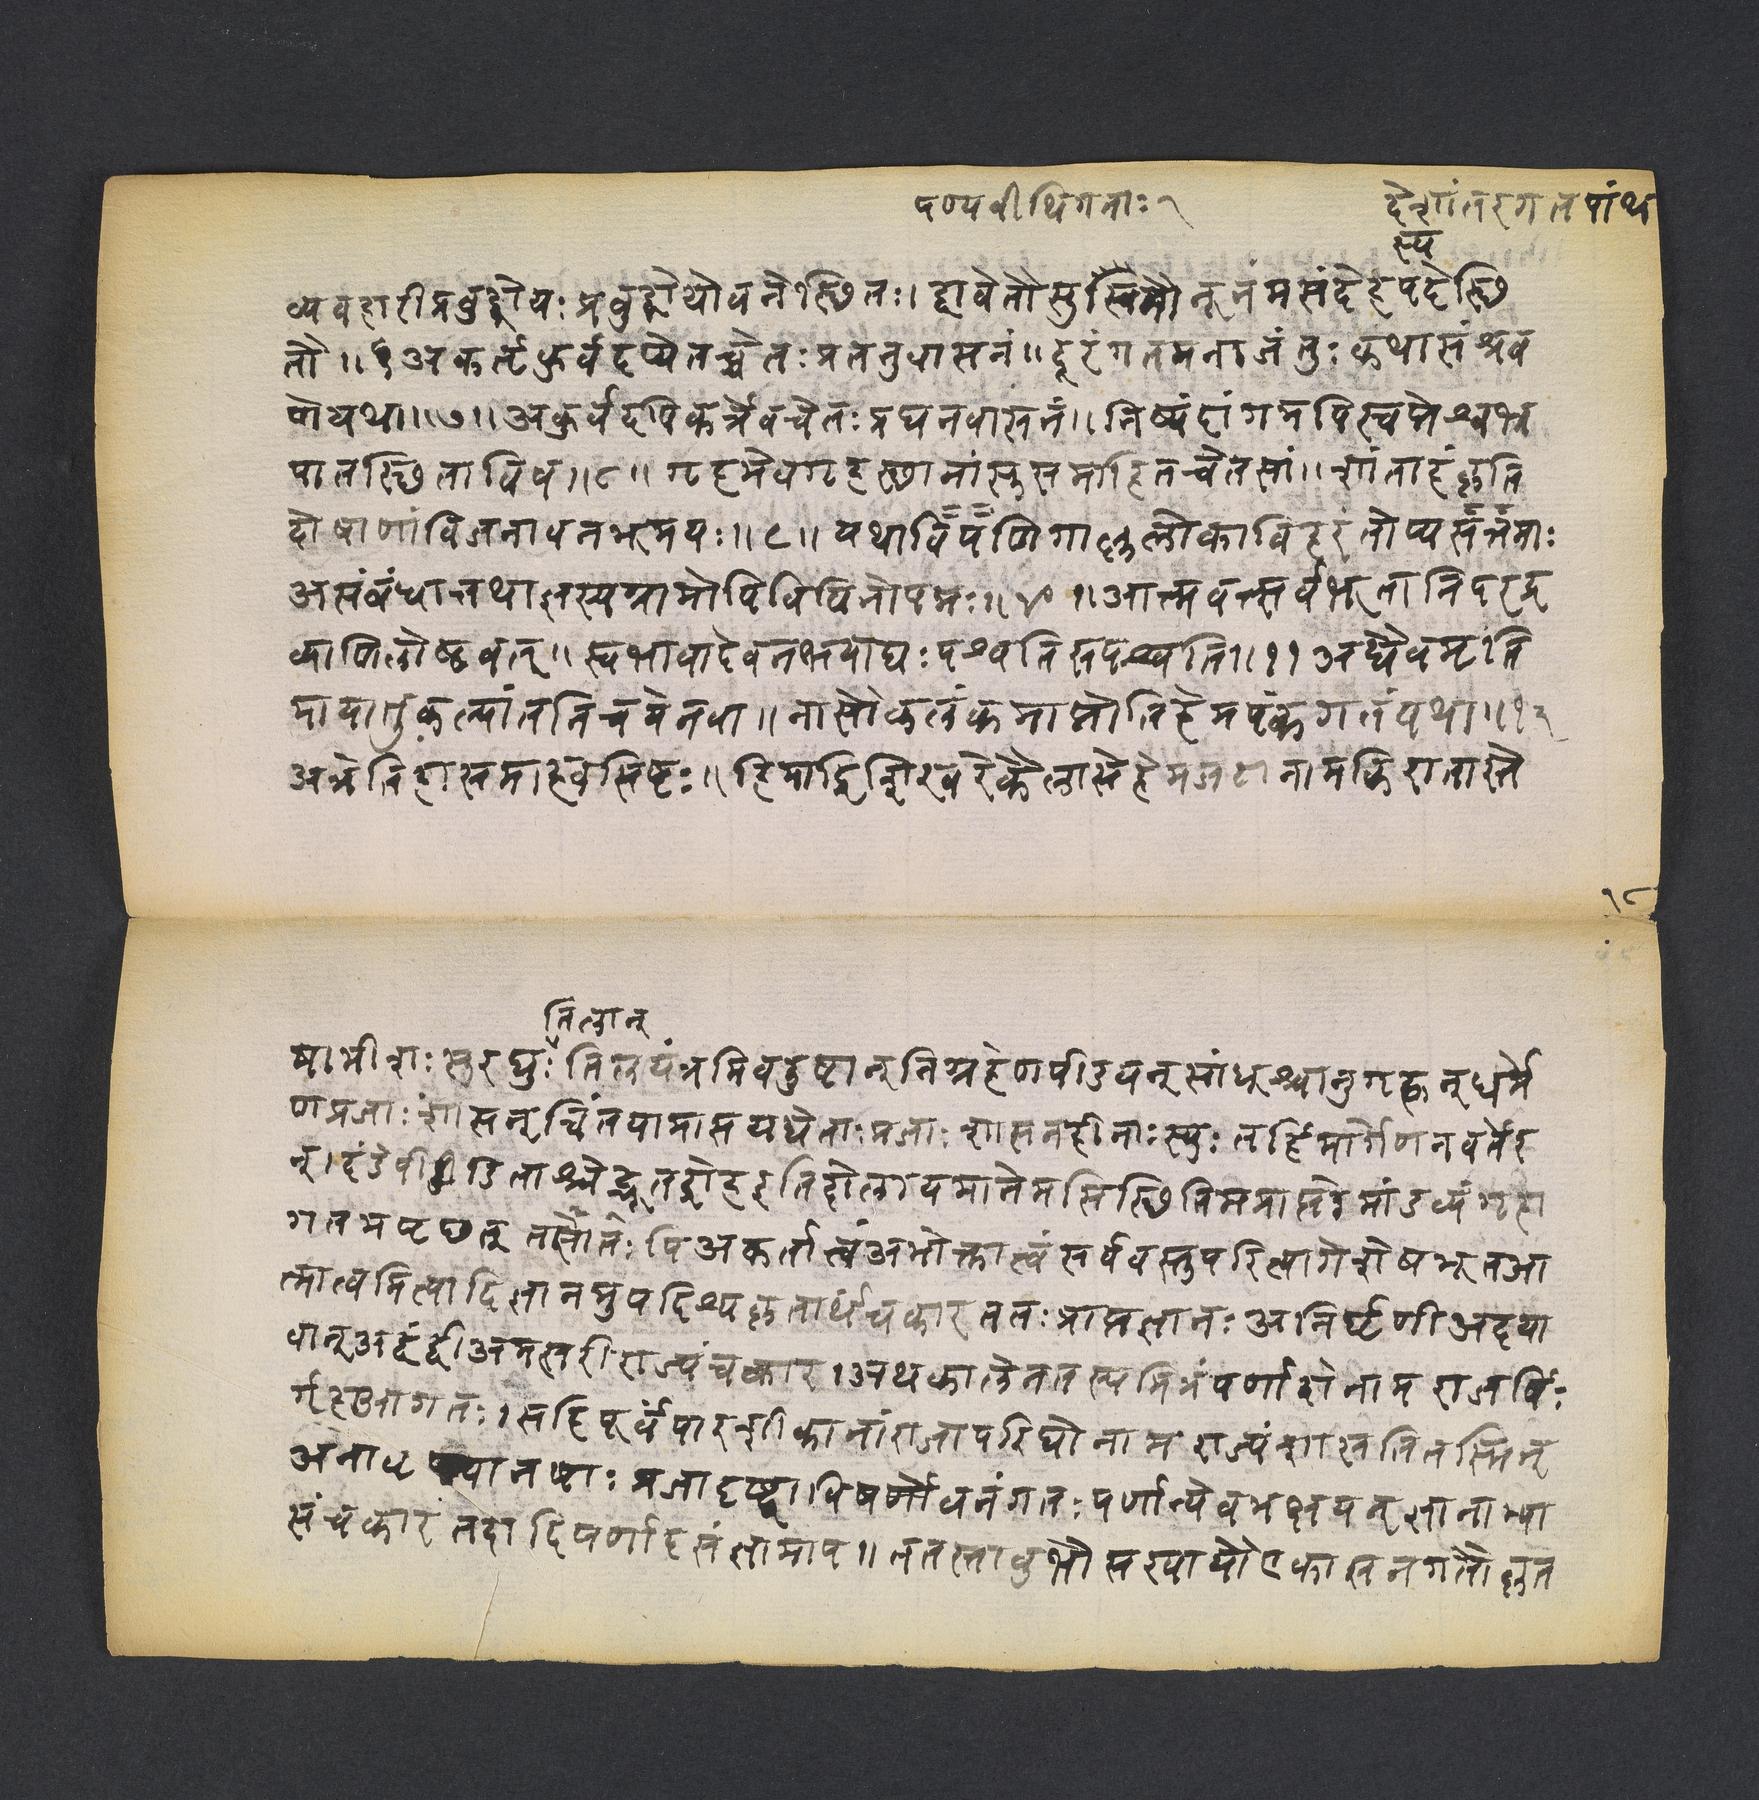 पण्यवीथिगताः१
देशांतरगतपांथ
स्य
व्यवहारीप्रबुद्धोयः प्रबुद्धोयोवनेस्थितः। द्वावेतौसुस्थितौनूनमसंदेहपदेस्थि
तौ॥६अकर्तृकुर्वदप्येतच्चेतः प्रतनुवासनं॥दूरंगतमनाजंतुः कथासंश्रव
णेयथा॥७॥अकुर्वदपिकर्त्रेवचेतः प्रघनवासनं॥निष्पंदांगमपिस्वप्नेश्वभ्र
पातस्थिताविव॥८॥गृहमेवगृहस्थानांसुसमाहितचेतसां॥शांताहंकृति
दोषाणांविजनावनभूमयः॥९॥यथाविपणिगालोकाविहरंतोप्यसंभ्रमाः
असंबंधात्तथाज्ञस्यग्रामोपिविपिनोपमः॥१०॥आत्मवत्सर्वभूतानिपरद्र
व्याणिलोष्ठवत्॥स्वभावादेवनभयाद्यः पश्यतिसपश्यति॥११अद्यैवमृति
मायातुकल्पांतनिचयेनवा॥नासौकलंकमाप्नोतिहेमपंकगतंयथा॥१२
अत्रेतिहासमाहवसिष्टः॥हिमाद्रिशिखरेकैलासेहेमजटानामकिरातास्ते
१८
तिलान्
षामीशः सुरघुः तिलयंत्रमिवदुष्टान्निग्रहेणपीडयन्साधूश्चानुगृह्णन्धर्मे
णप्रजाः शासन्चिंतयामासयद्येताः प्रजाः शासनहीनाः स्युः तर्हिमार्गेणनवर्तेर
न्। दंडेपीडिताश्चेद्भूतद्रोहइतिदोलायमानेमसिस्थितिमप्राप्तेमांडव्यंगृहा
गतमपृछत् अकर्तात्वंअभोक्तात्वंसर्ववस्तुपरित्यागेशेषभूतआ
त्मात्वमित्यादिज्ञानमुपदिश्यकृतार्थंचकारततः प्राप्तज्ञानः अनिर्घृणीअदया
वान्अद्वंद्वीअमत्सरीराज्यंचकार।अथकालेनतस्यमित्रंपर्णादोनामराजर्षिः
गृहआगतः।सहिपूर्वंपारशीकानांराजापरिघोनामराज्यंशासतितस्मिन्
अनावृष्ट्यानष्टाः प्रजादृष्ट्वाविषण्णोवनंगतः पर्णान्येवभक्षयन्ज्ञानाभ्या
संचकार तदादिपर्णादसंज्ञामाप॥ततस्तावुभौसखायौएकासनगतौकृत